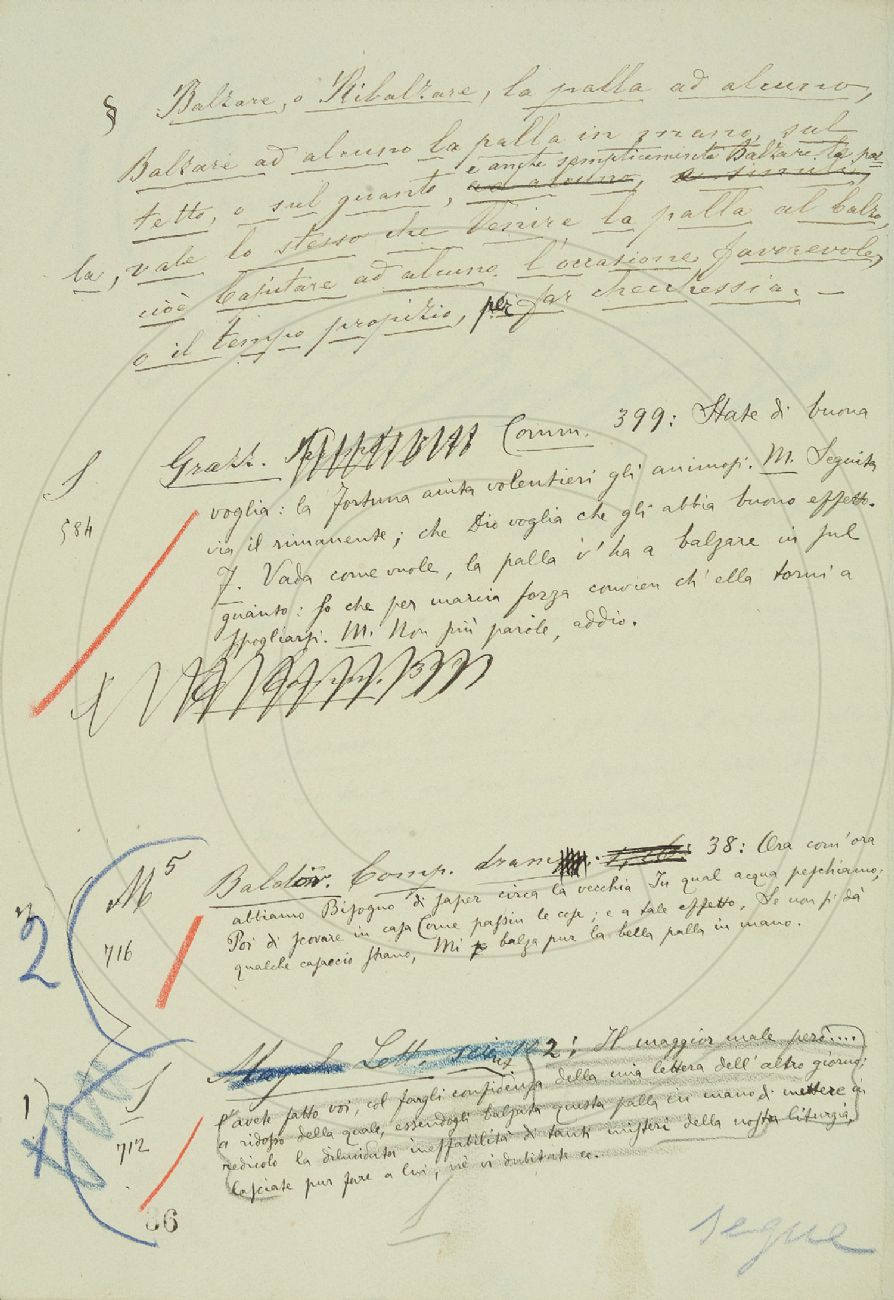 § Balzare, o Ribalzare, la palla ad alcuno,
Balzare ad alcuno la palla in mano, sul
e anche semplicemente Balzare la pal-
tetto, o sul guanto, ad alcuno,
la, vale lo stesso che Venire la palla al balzo,
cioè Capitare ad alcuno l'occasione favorevole,
o il tempo propizio, per far checchessia. –
S
584
Grazz. Comm. 399: State di buona
voglia: la Fortuna aiuta volentieri gli animosi. M. Seguita
via il rimanente; che Dio voglia che gli abbia buono effetto.
J. Vada come vuole, la palla v'ha a balzare in sul
guanto: so che per marcia forza convien ch'ella torni a
spogliarsi. M. Non più parole, addio.
M5
2
716
Baldov. Comp. dramm. 38: Ora com'ora
abbiamo Bisogno di saper circa la vecchia In qual acqua peschiamo;
Poi di scovare in casa Come passin le cose; e a tale effetto, Se non si dà
qualche casaccio strano, Mi balza pur la bella palla in mano.
1)
S
712
Magal. Lett. scient. 2: Il maggior male però....
l'avete fatto voi, col fargli confidenza della mia lettera dell'altro giorno;
a ridosso della quale, essendogli balzata questa palla in mano di mettere in
redicolo la dilucidata ineffabilità di tanti misteri della nostra liturgia,
lasciate pur fare a lui, nè vi dubitate ec.
S
36
segue